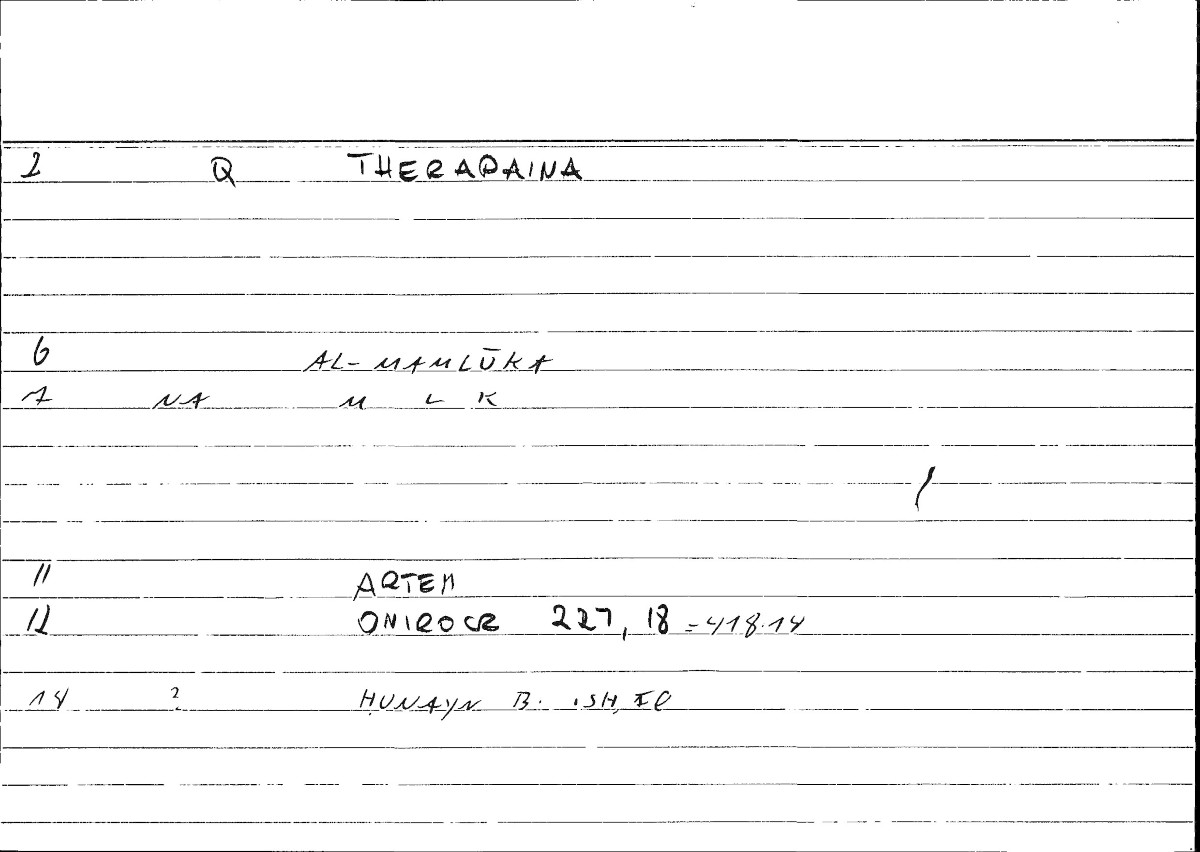 2 Q THERAPAINA
6 AL-MAMLŪKA
7 NA M L K
11 ARTEM
12 ONIROCR 227, 18 =418.14
14 ? ḤUNAYN B. ISḤĀQ